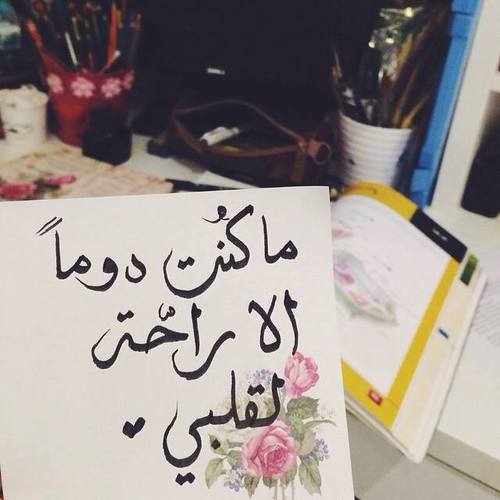 ما كنُت دوماً
الا راحّة
لقلبي